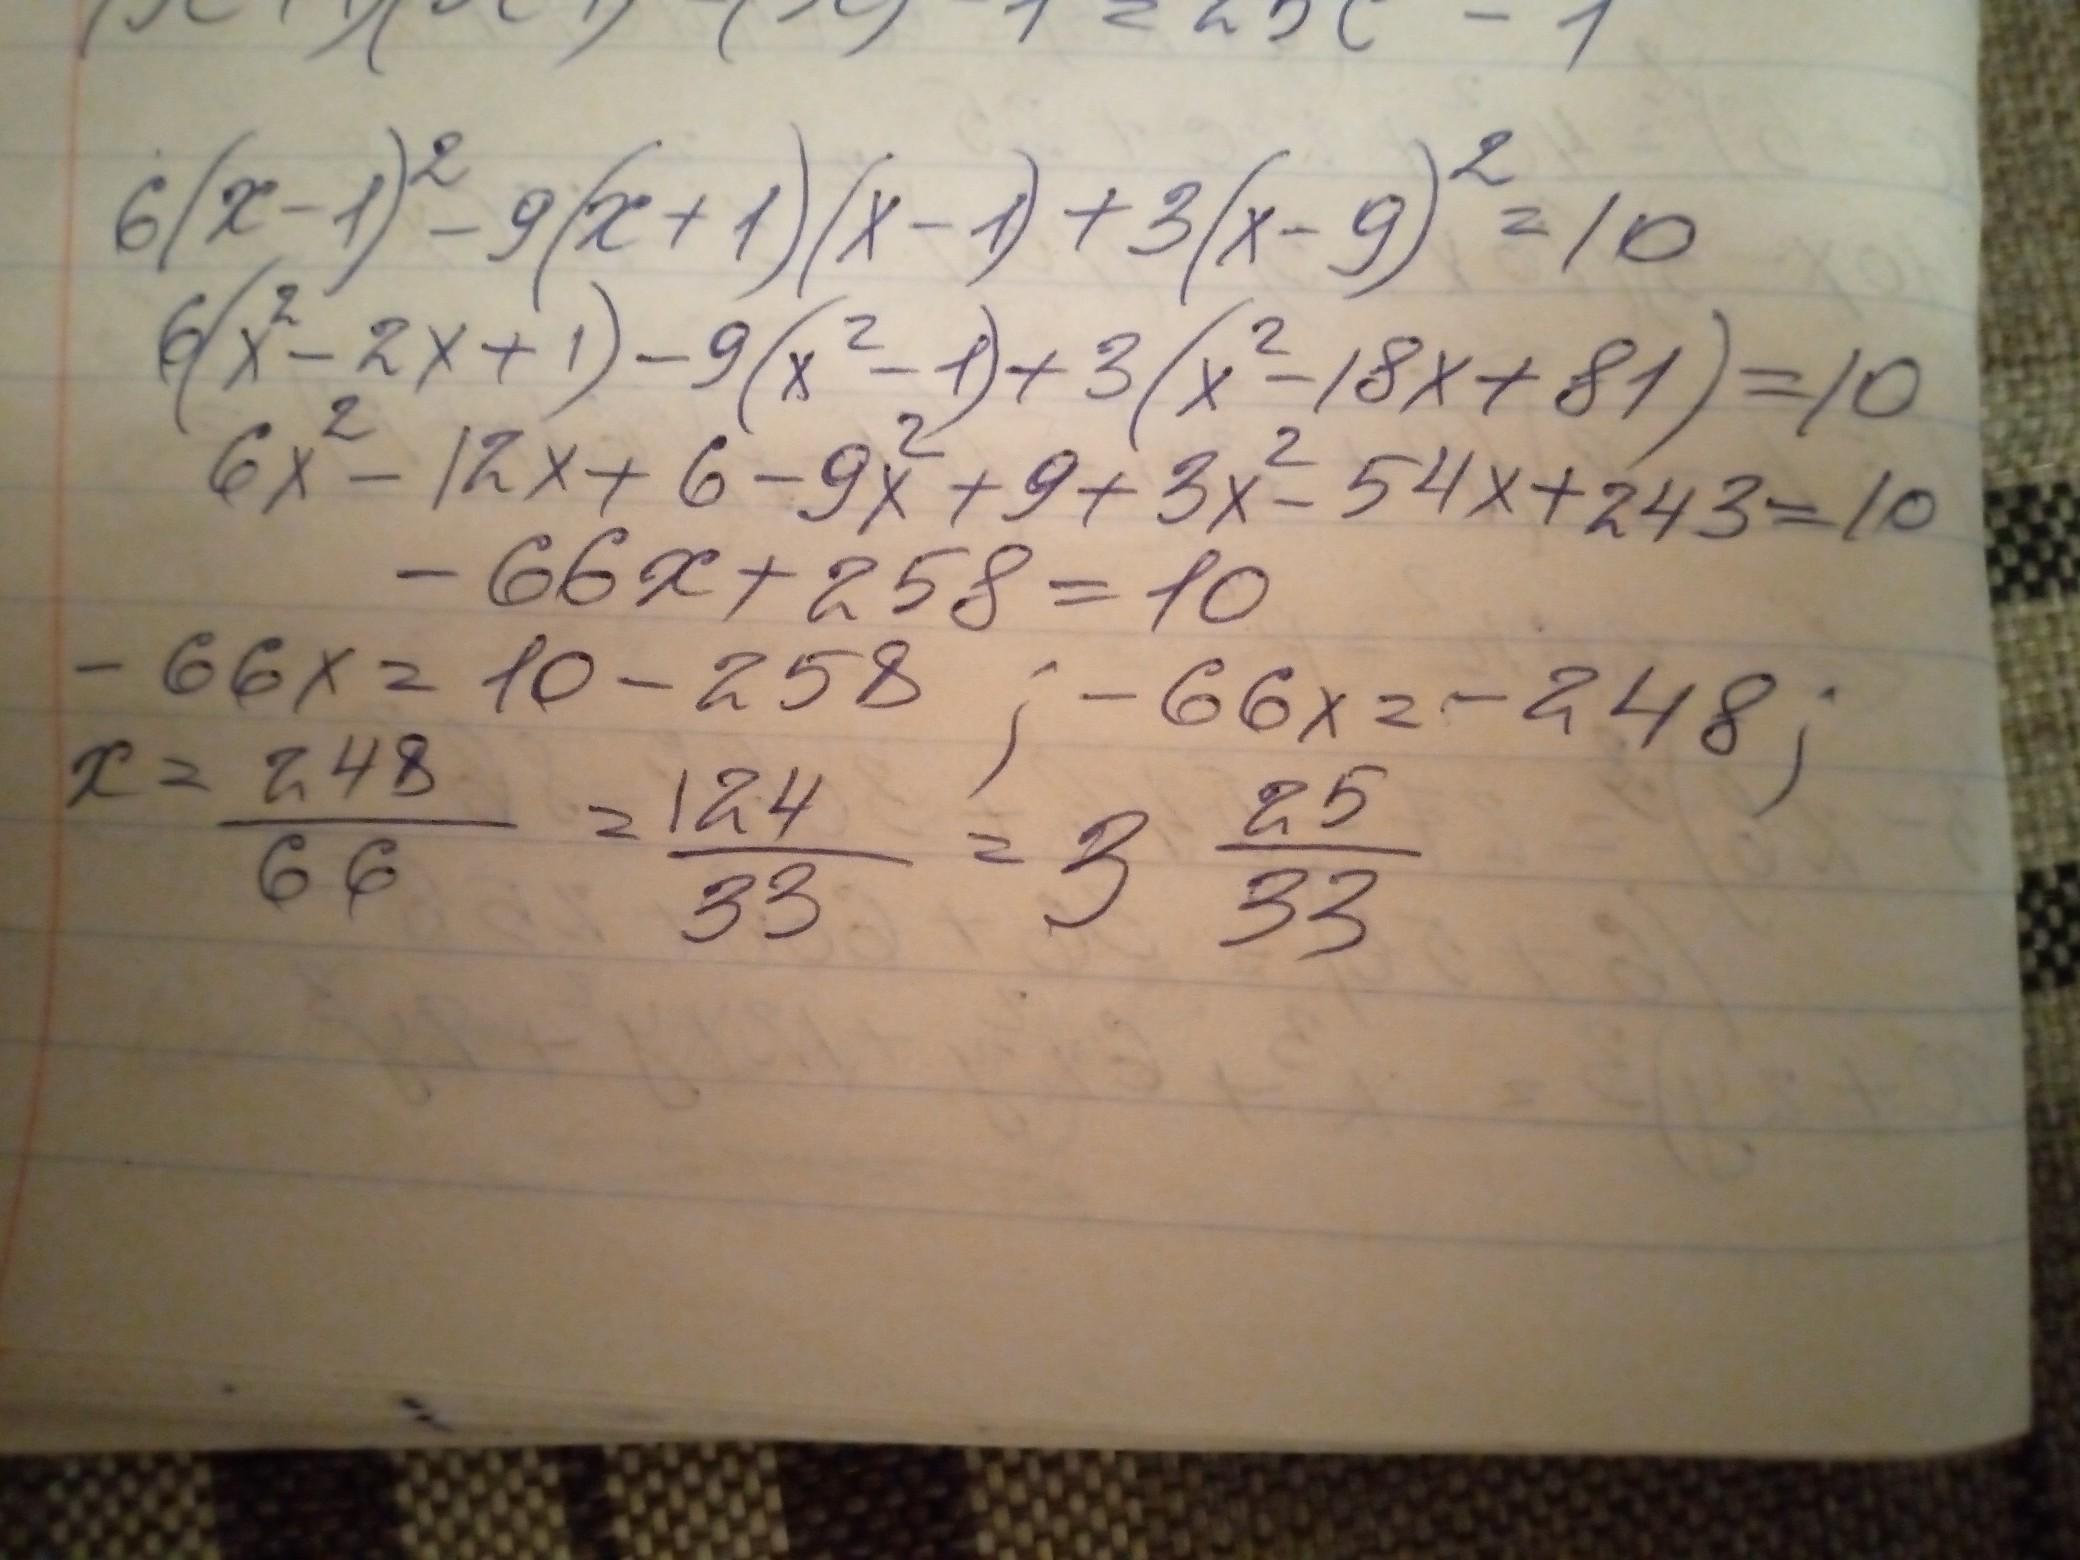 6(x-1)²-9(x+1)(x-1)+3(x-9)²=10
6(x²-2x+1)-9(x²-1)+3(x²-18x+81)=10
6x²-12x+6-9x²+9+3x²-54x+243=10
-66x+258=10
-66x=10-258 ; -66x=-248;
x=248/66=124/33=3 25/33